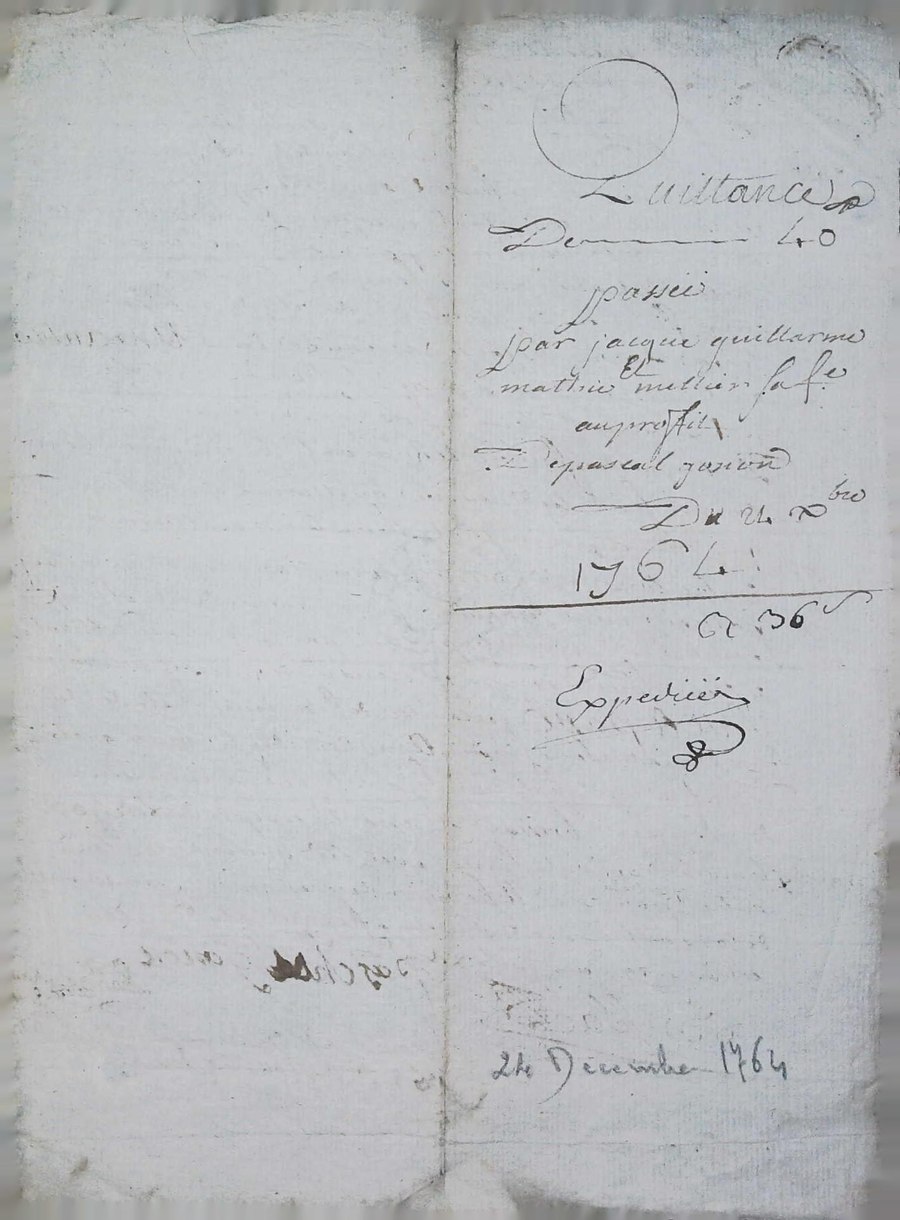 Quittance
De 40
passée
par jacque guillarme
Et
mathie mellier sa fe
au profit
De pascal
Du 24 xbre
1764
36 s
Expediée
24 Decembre 1764